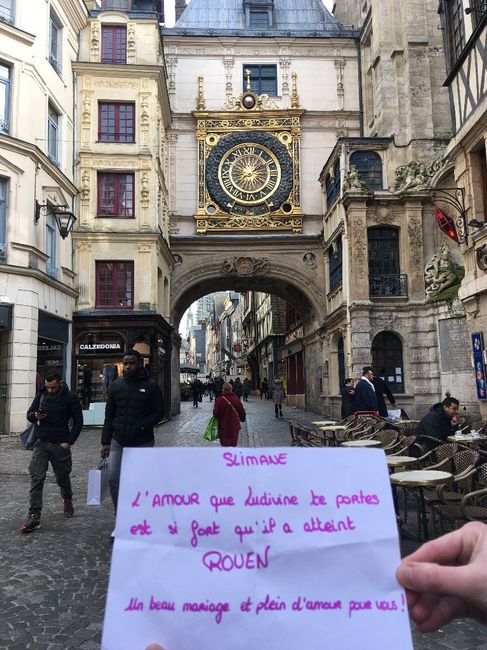 CALZEDONIA
SLIMANE
L'AMOUR que Ludivine te portes
est si fort qu'il a atteint
ROUEN
Un beau mariage et plein d'amour pour vous!